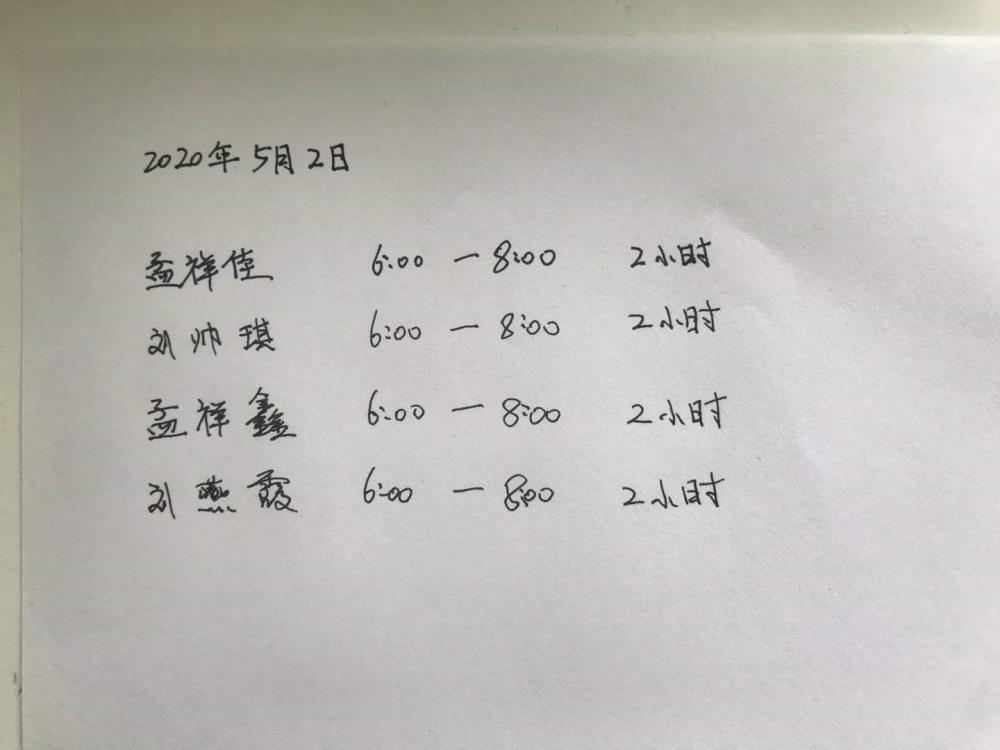 2020年5月2日
孟祥佳 6:00 — 8:00 2小时
刘帅琪 6:00 — 8:00 2小时
孟祥鑫 6:00 — 8:00 2小时
刘燕霞 6:00 — 8:00 2小时